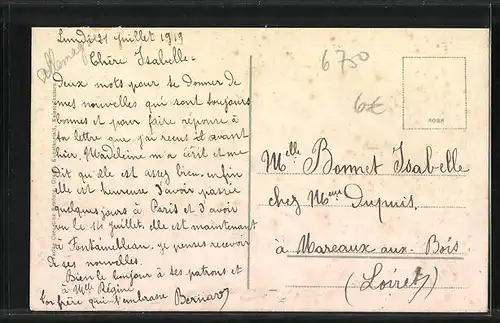 Lundi 21 juillet 1919
Chère Isabelle =
Deux mots pour te donner de
mes nouvelles qui sont toujours
bonnes et pour faire réponse à
ta lettre que j'ai reçus avant
hier, Madeleine m'a écrit et me
dit qu'elle est assez bien. enfin
elle est heureuse d'avoir passée
quelques jours à Paris et d'avoir
vu le 14 juillet. elle est maintenant
à Fontainebleau, je penses recevoir
de ses nouvelles.
Bien le bonjour à tes patrons et
à Mlle Régine
Ton frère qui t'embrasse Bernard
Allemagne
6750
6€
Melle Bonnet Isabelle
chez Mme Dupuis.
à Mareaux-aux-Bois
(Loiret)